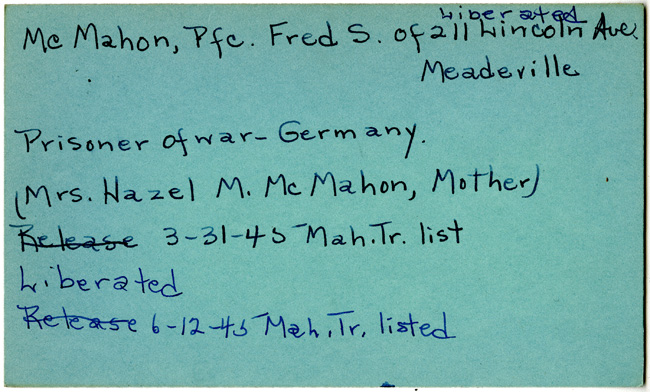 Liberated
Mc Mahon, Pfc. Fred S. of 211 Lincoln Ave.
Meadeville
Prisoner of war - Germany.
(Mrs. Hazel M. Mc Mahon, Mother)
Release 3-31-45 Mah. Tr. list
Liberated
Release 6-12-45 Mah. Tr. listed